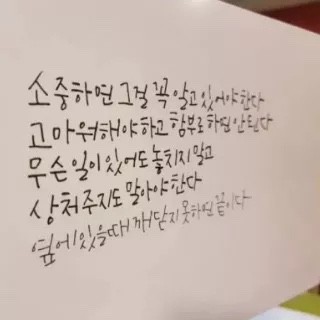 소중하면 그걸 꼭 알고 있어야 한다
고마워해야하고 함부로 하면 안된다
무슨 일이 있어도 놓치지 말고
상처주지도 말아야 한다
옆에 있을때 깨닫지 못하면 끝이다